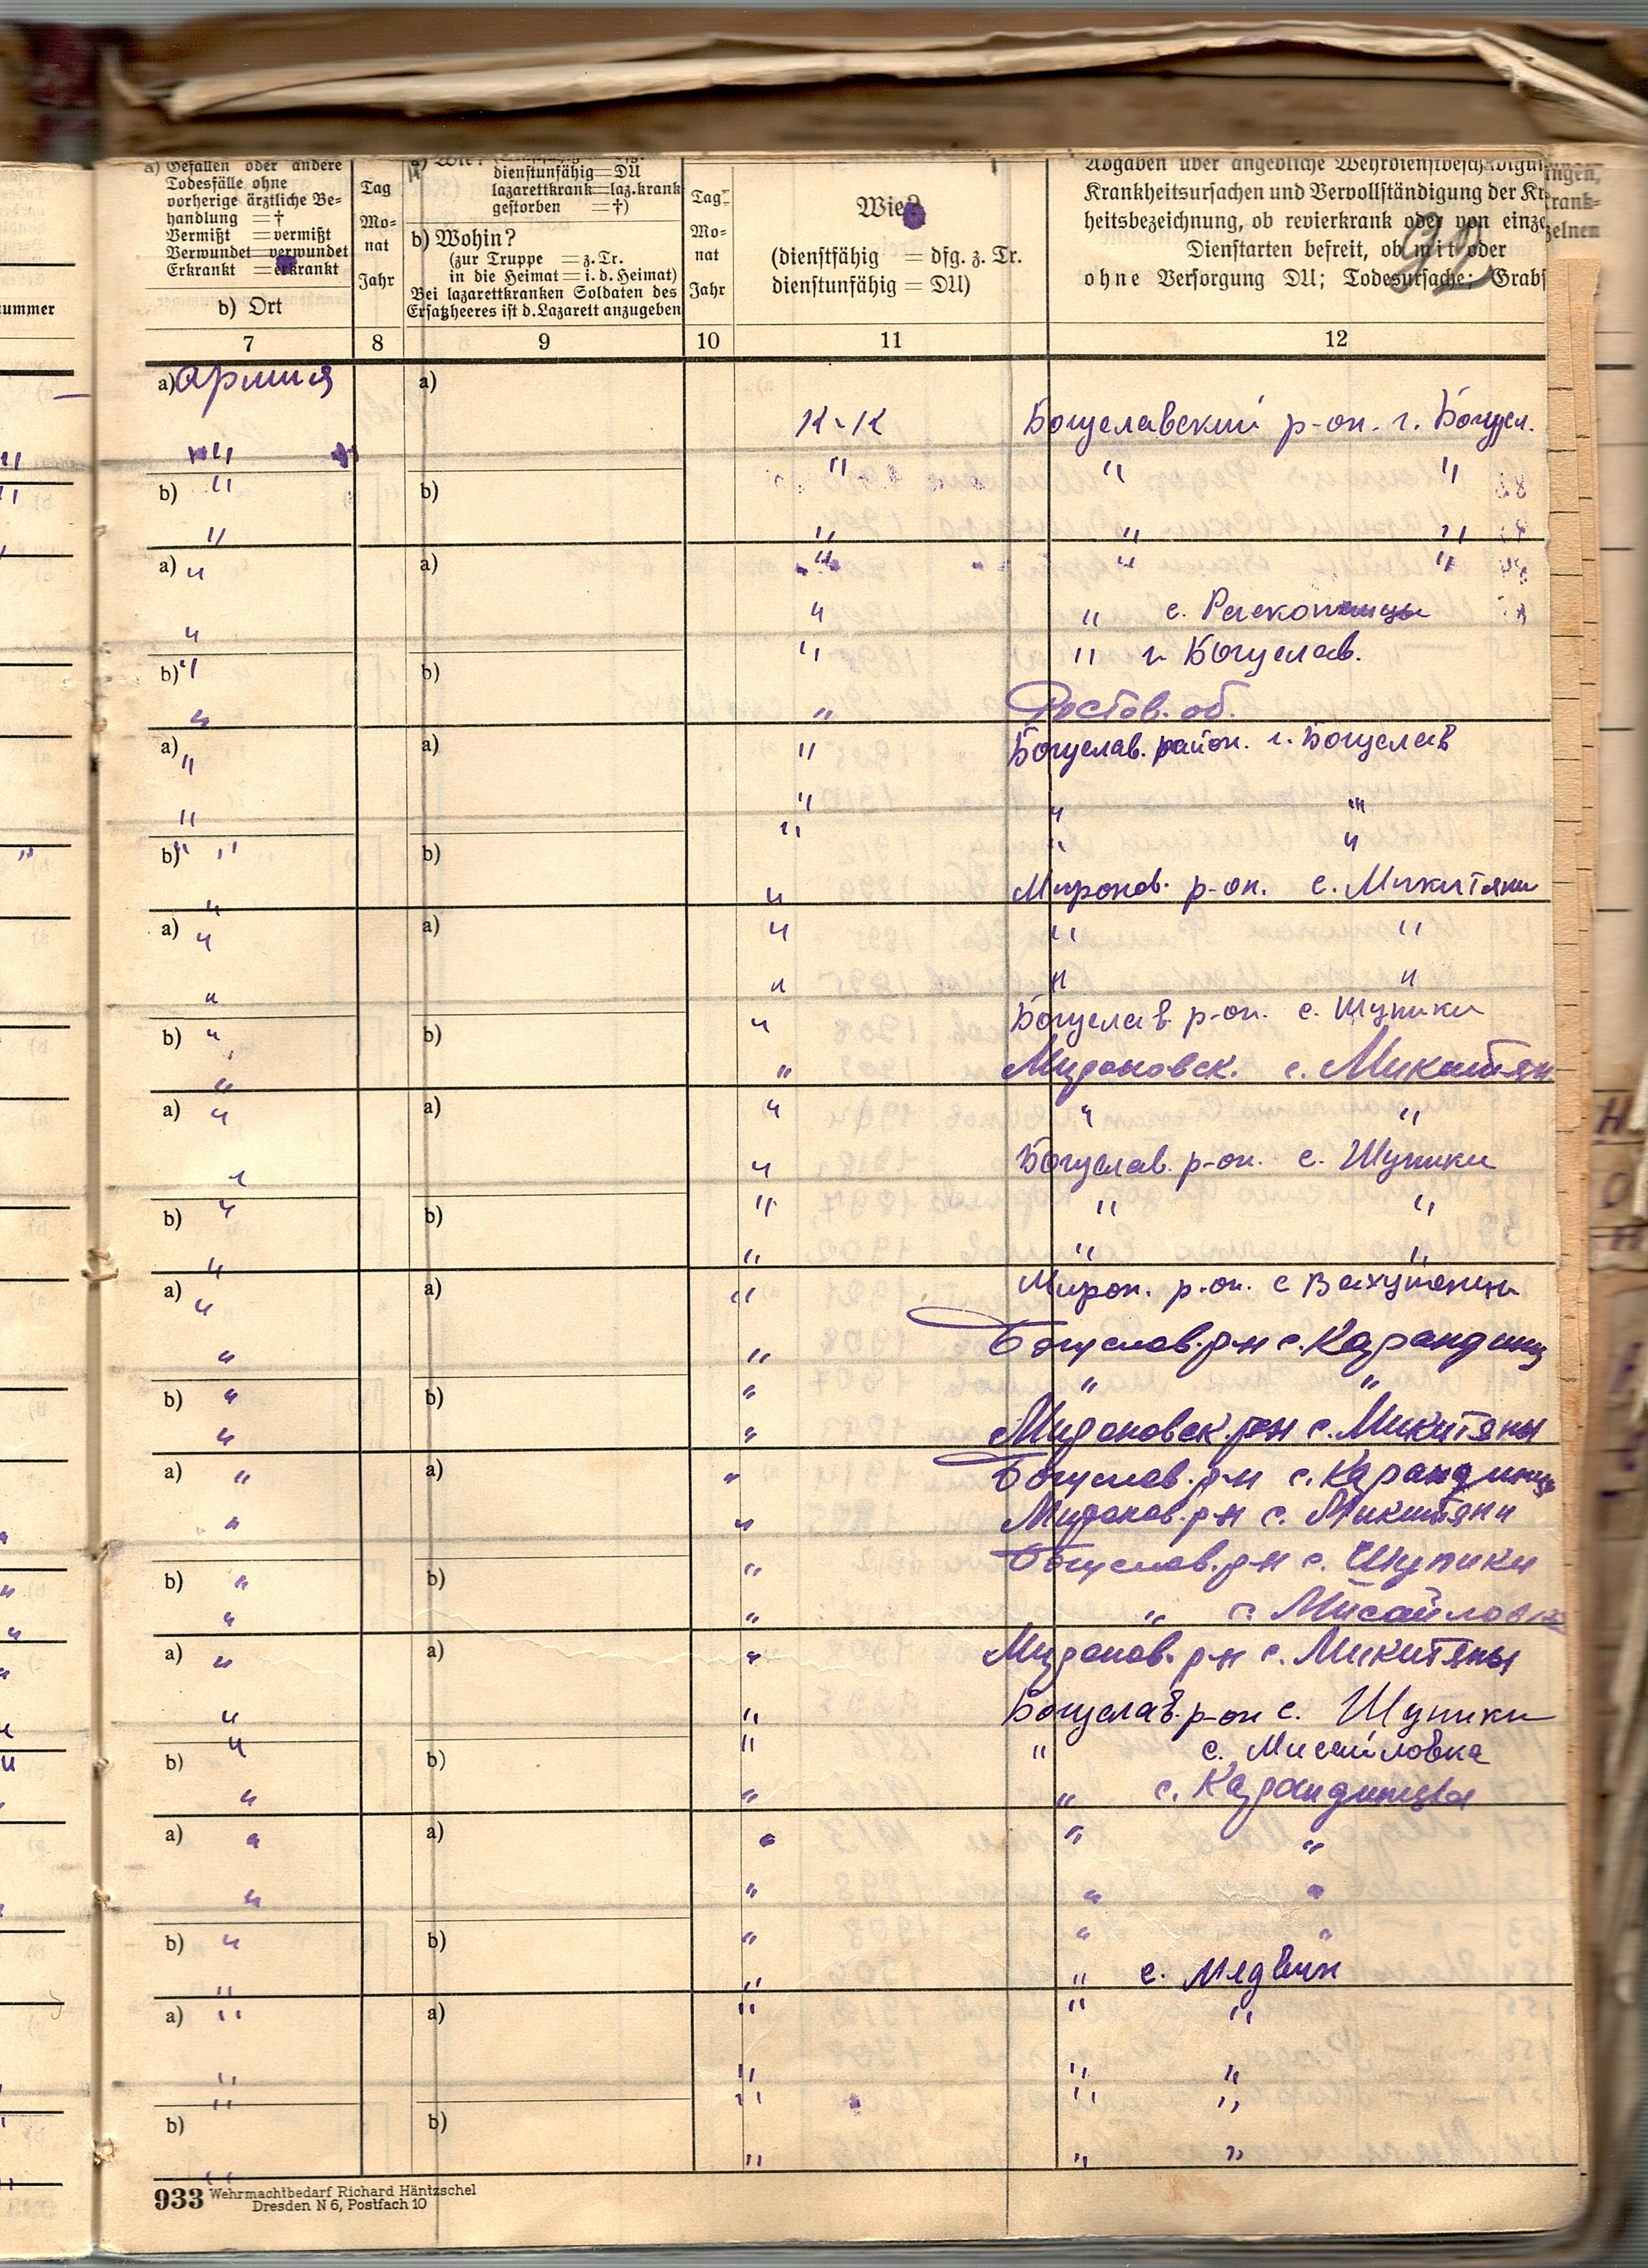 a) Gefallen oder andere
Todesfälle ohne
vorherige ärztliche Be-
handlung =†
Vermißt =vermißt
Verwundet=verwundet
Erkrankt =erkrankt
b) Ort
Tag
Mo-
nat
Jahr
a) Wie?
dienstunfähig=DU
lazarettkrank=laz.krank
gestorben =†)
b) Wohin?
(zur Truppe =z. Tr.
in die Heimat=i. d. Heimat)
Bei lazarettkranken Soldaten des
Ersatzheeres ist d. Lazarett anzugeben
Tag
Mo-
nat
Jahr
Wie?
(dienstfähig = dfg. z. Tr.
dienstunfähig = DU)
über angebliche
Krankheitsursachen und Vervollständigung der Kr
heitsbezeichnung, ob revierkrank oder von einze
Dienstarten befreit, ob mit oder
ohne Versorgung DU; Todesursache; Grabs
ummer
ngen,
rank-
zelnen
7 8 9 10 11 12
a) армия a)
К-К Богуславский р-он. г. Богусл.
" " " "
b) " b)
" " " "
a) " a) " " "
" " " с.
b) " b) " " г. Богуслав.
" " Ростов. об.
a) " a) " Богуслав. район. г. Богуслав
" " " "
b) " " b) " " "
" " Миронов. р-он. с. Микитяни
a) " a) " " "
" " " "
b) " b) " Богуслав р-он. с. Шупики
" " Мироновск. с. Микитян
a) " a) " " "
" " Богуслав. р-он. с. Шупики
b) " b) " " "
" " " "
a) " a) " Мирон. р-он. с
" " Богуслав. р-н с. Карандинц
b) " b) " " "
" " Мироновск. р-н с. Микитяны
a) " a) " Богуслав. р-н с. Карандинцы
" " Миронов. р-н с. Микитяни
b) " b) " Богуслав. р-н с. Шупики
" " " с. Мисайловка
a) " a) " Миронов. р-н с. Микитяны
" " Богуслав. р-он с. Шупики
b) " b) " " с. Мисайловка
" " " с. Карандинцы
a) " a) " " "
" " " "
b) " b) " " "
" " " с. Медвин
a) " a) " " "
" " " "
b) " b) " " "
" " " "
933 Wehrmachtbedarf Richard Häntzschel
Dresden N 6, Postfach 10